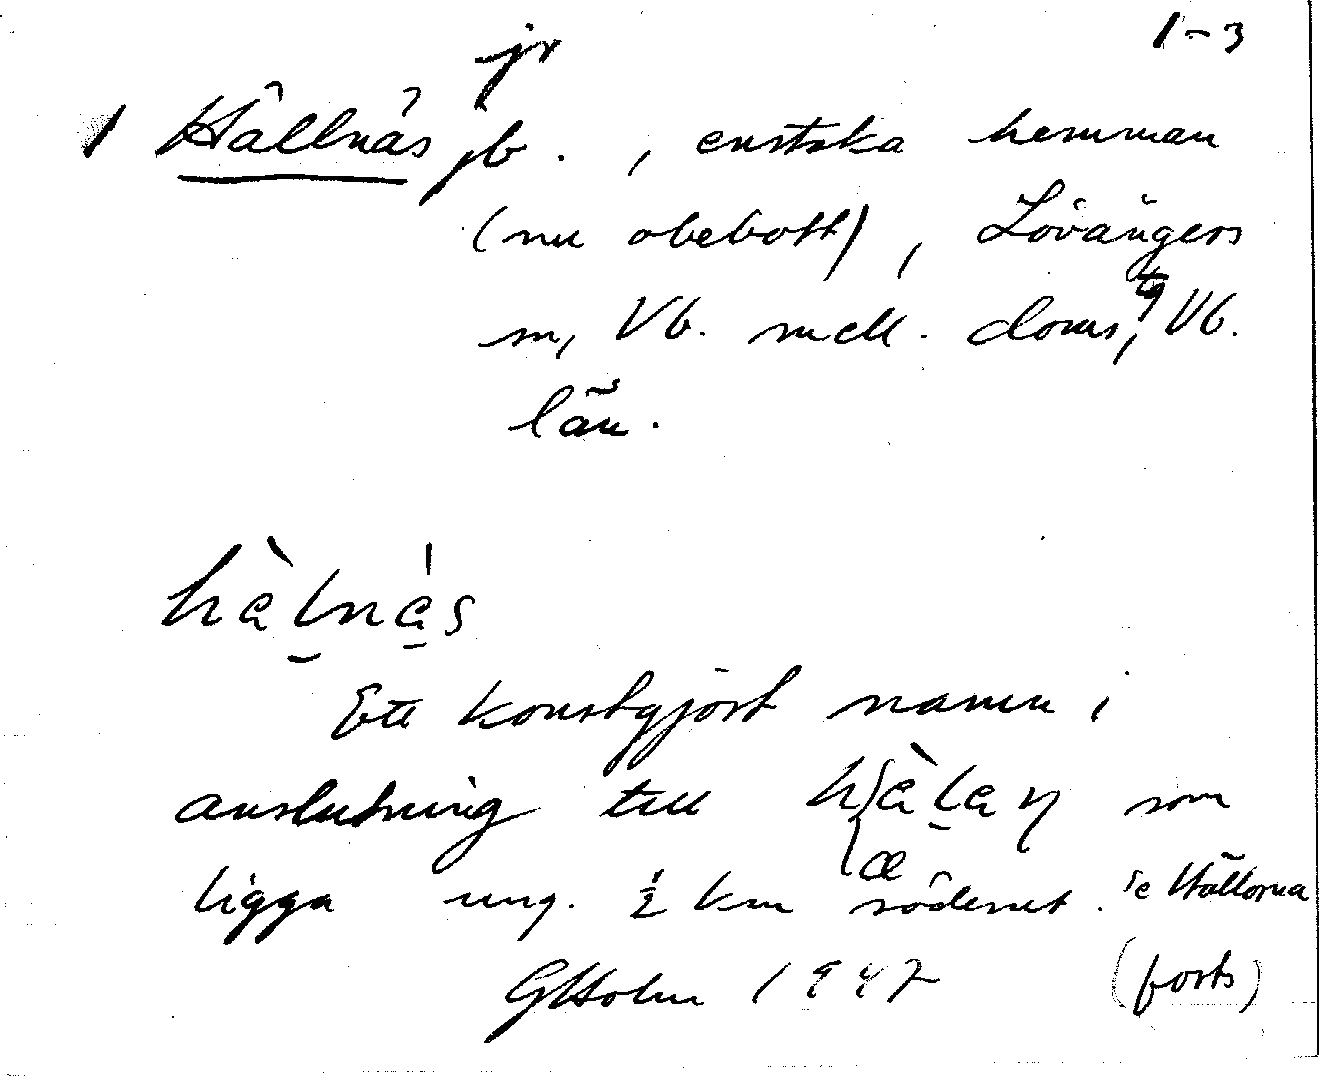 1-3
jr
1 Hällnäs jb. , enstaka hemman
(nu obebott) , Lövångers
sn, Vb. mell. doms, Vb.
län.
hàlnás
Ett konstgjort namn i
anslutning till som
ligga ung. ½ km söderut. Hällorna
GHolm 1947 (forts)